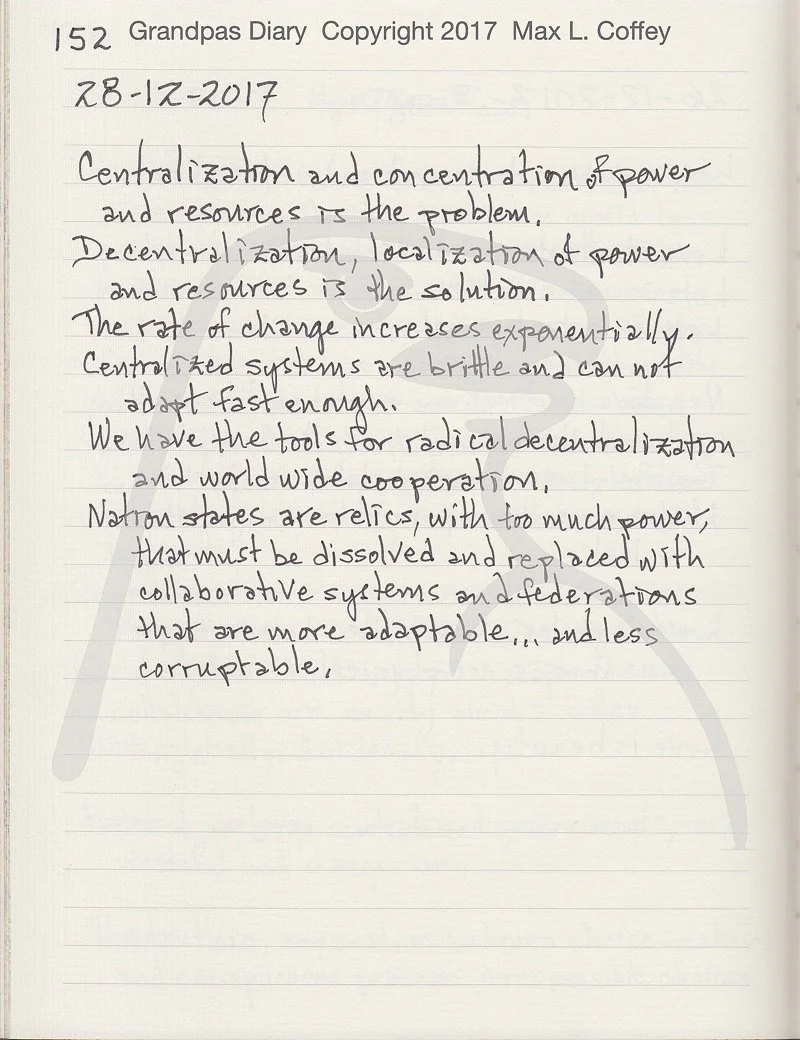 152 Grandpas Diary Copyright 2017 Max L. Coffey
28-12-2017
Centralization and concentration of power
and resources is the problem.
Decentralization, localization of power
and resources is the solution.
The rate of change increases exponentially.
Centralized systems are brittle and can not
adapt fast enough.
We have the tools for radical decentralization
and world wide cooperation.
Nation states are relics, with too much power,
that must be dissolved and replaced with
collaborative systems and federations
that are more adaptable... and less
corruptable.